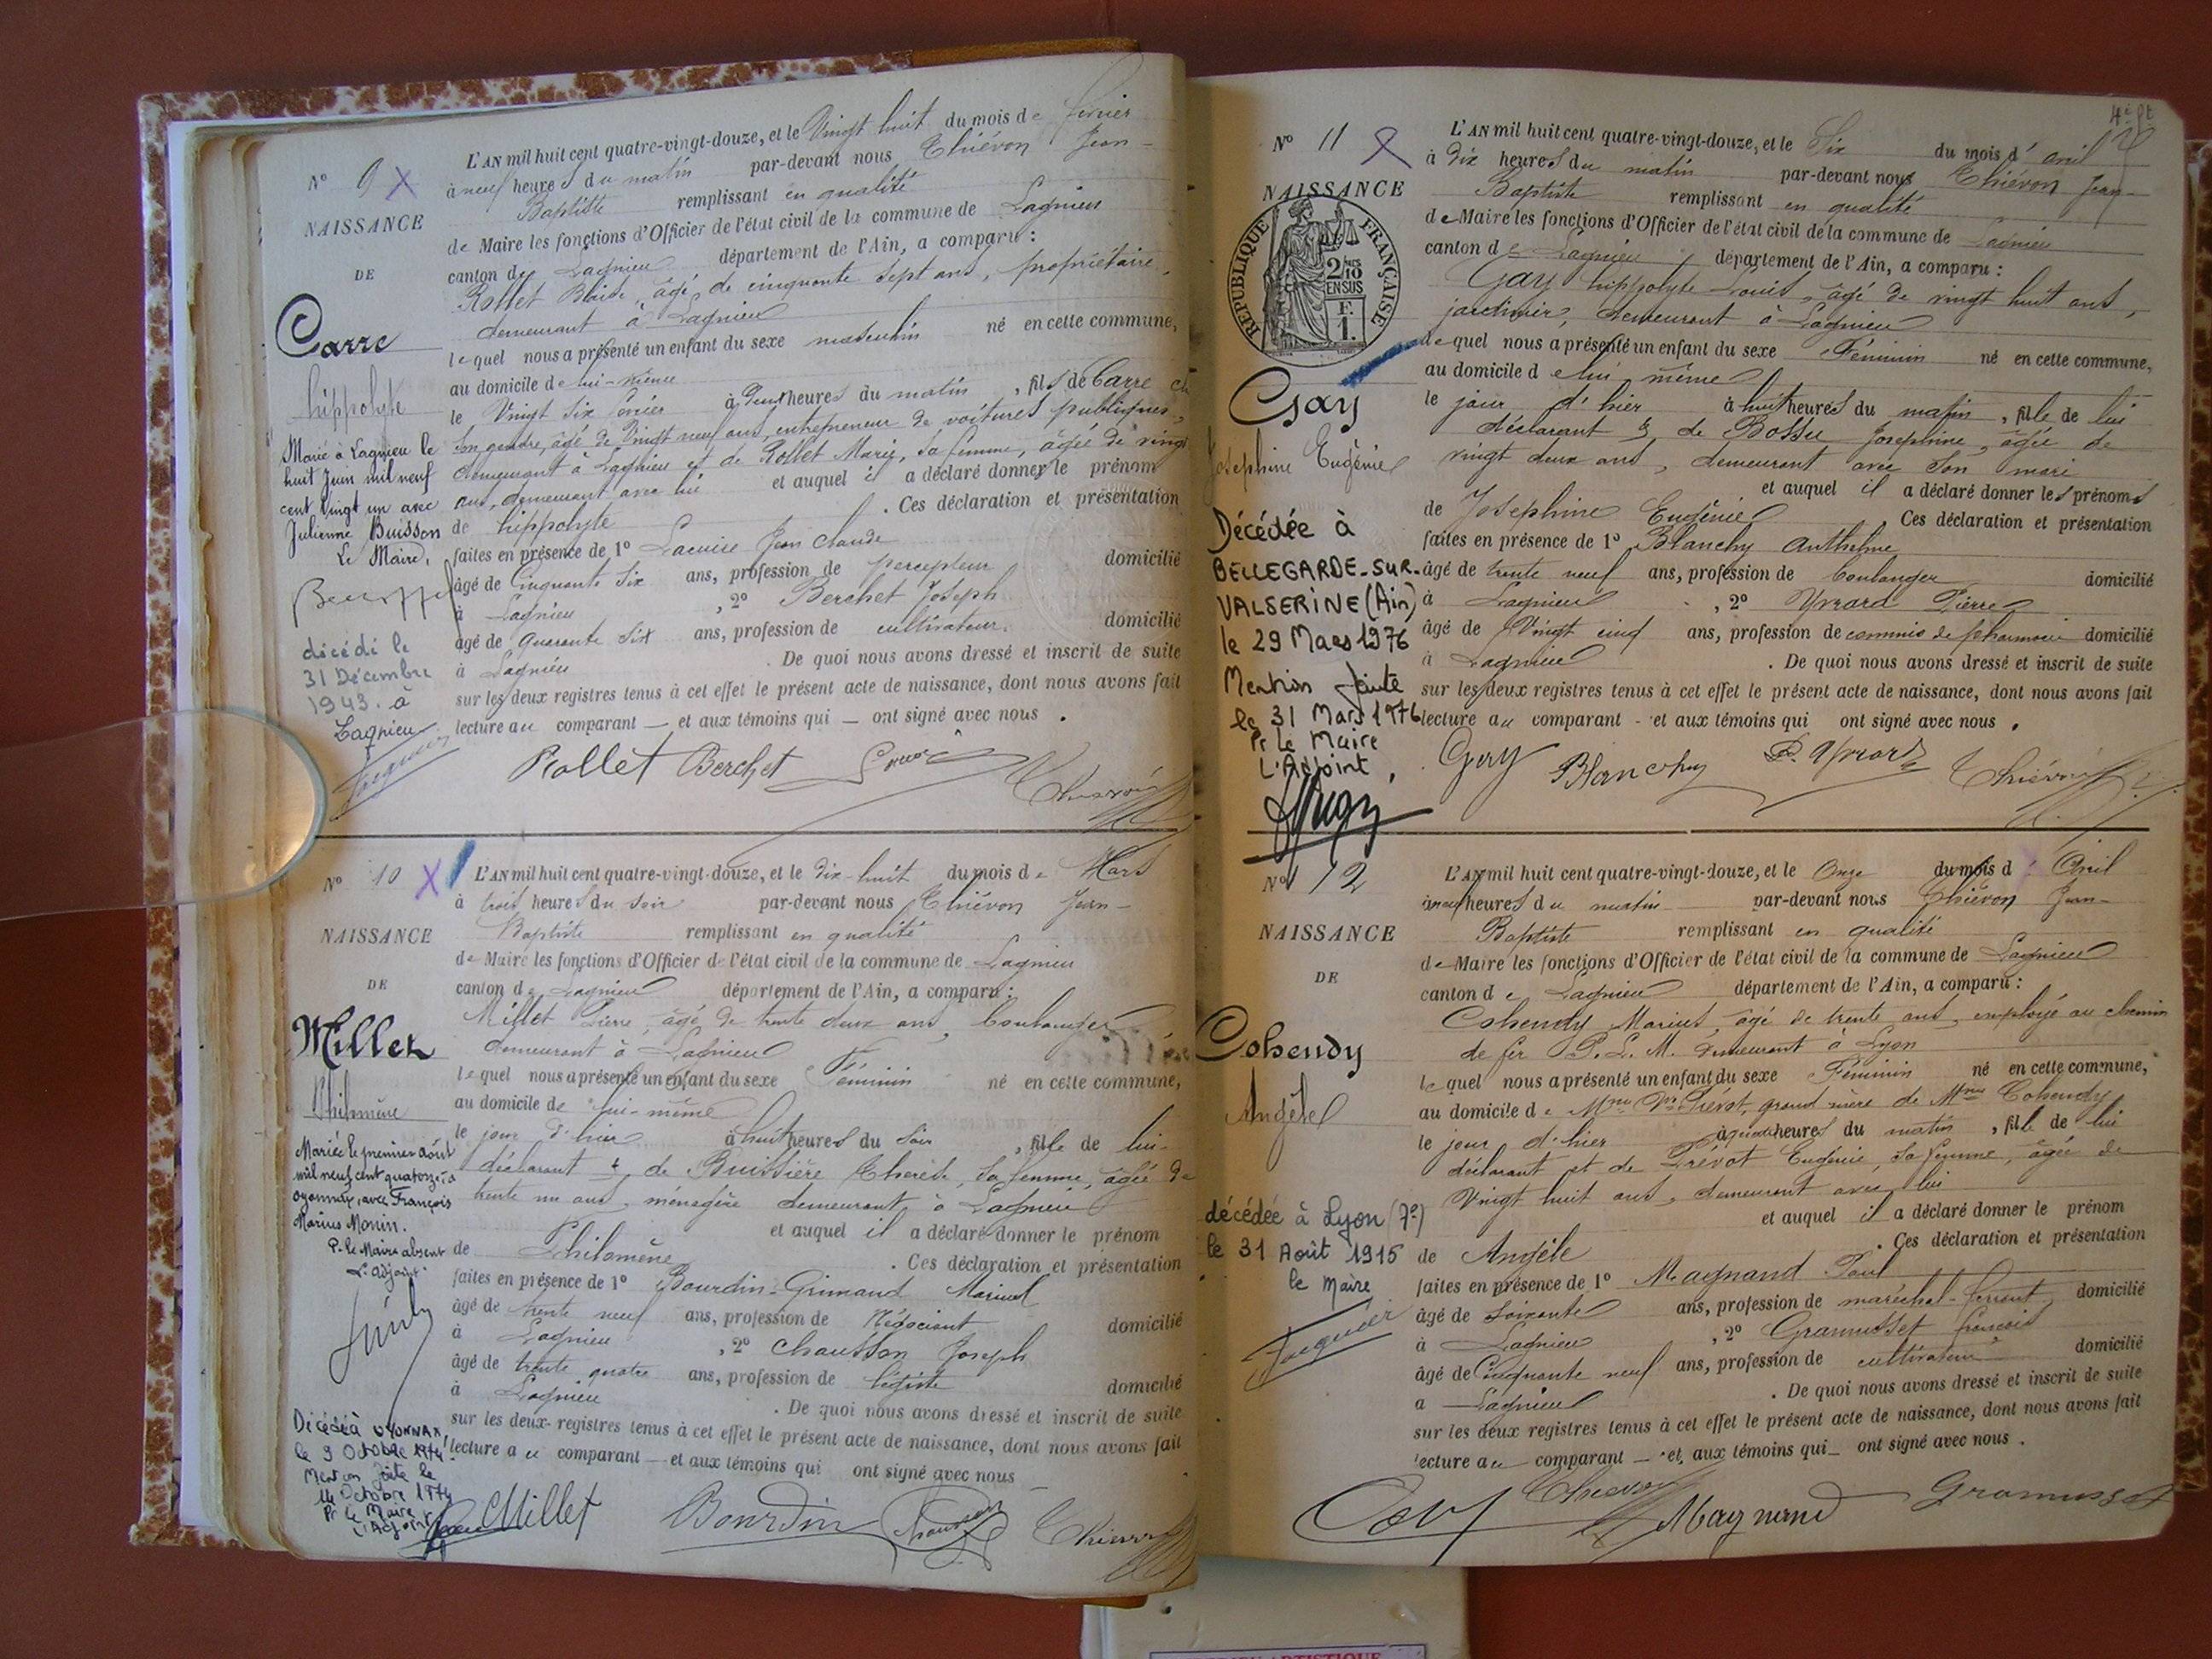 N° 9 X
NAISSANCE
DE
Carre
hippolyte
Marié à Lagnieu le
huit Juin mil neuf
cent vingt un avec
Julienne Buisson
Le Maire,
décédé le
31 Décembre
1943. à
Lagnieu
L'AN mil huit cent quatre-vingt-douze, et le Vingt huit du mois de février
à neuf heures du matin par-devant nous Thiévon Jean-
Baptiste remplissant en qualité
de Maire les fonctions d'Officier de l'état civil de la commune de Lagnieu
canton de Lagnieu département de l'Ain, a comparu :
Rollet Blaise, âgé de cinquante sept ans, propriétaire,
demeurant à Lagnieu
lequel nous a présenté un enfant du sexe masculin né en cette commune,
au domicile de lui-même
le Vingt six février à deux heures du matin, fils de Carre
son gendre, âgé de Vingt neuf ans, entrepreneur de voitures publiques,
demeurant à Lagnieu et de Rollet Marie, sa femme, âgée de vingt
ans, demeurant avec lui et auquel il a déclaré donner le prénom
de hippolyte . Ces déclaration et présentation
faites en présence de 1° Lacuise Jean Claude
âgé de Cinquante six ans, profession de percepteur domicilié
à Lagnieu , 2° Berchet Joseph
âgé de quarante six ans, profession de cultivateur. domicilié
à Lagnieu . De quoi nous avons dressé et inscrit de suite
sur les deux registres tenus à cet effet le présent acte de naissance, dont nous avons fait
lecture au comparant — et aux témoins qui — ont signé avec nous .
Rollet Berchet Thiévon
N° 10 X
NAISSANCE
DE
Millet
Philomène
Mariée le premier août
mil neuf cent quatorze, à
Oyonnax, avec François
Marius Monin.
P. le Maire absent
L'adjoint
Décédée à OYONNAX
le 9 Octobre 1974
Mention faite le
14 Octobre 1974
Pr le Maire
L'Adjoint
L'AN mil huit cent quatre-vingt-douze, et le dix-huit du mois de Mars
à trois heures du soir par-devant nous Thiévon Jean-
Baptiste remplissant en qualité
de Maire les fonctions d'Officier de l'état civil de la commune de Lagnieu
canton de Lagnieu département de l'Ain, a comparu :
Millet Pierre, âgé de trente deux ans, boulanger
demeurant à Lagnieu
lequel nous a présenté un enfant du sexe Féminin né en cette commune,
au domicile de lui-même
le jour d'hier à huit heures du soir, fille de lui-
déclarant & de Buissière Thérèse, sa femme, âgée de
trente un ans, ménagère demeurant à Lagnieu
et auquel il a déclaré donner le prénom
de Philomène . Ces déclaration et présentation
faites en présence de 1° Bourdin-Grimaud Marius
âgé de trente neuf ans, profession de Négociant domicilié
à Lagnieu , 2° Chausson Joseph
âgé de trente quatre ans, profession de légiste domicilié
à Lagnieu . De quoi nous avons dressé et inscrit de suite
sur les deux registres tenus à cet effet le présent acte de naissance, dont nous avons fait
lecture au comparant — et aux témoins qui ont signé avec nous
Millet Bourdin Chausson Thiévon
4e ft
N° 11
NAISSANCE
RÉPUBLIQUE FRANÇAISE
2/10 EN SUS
F. 1.
Gay
Josephine Eugénie
Décédée à
BELLEGARDE-SUR-
VALSERINE (Ain)
le 29 Mars 1976
Mention faite
le 31 Mars 1976
Pr Le Maire
L'Adjoint,
L'AN mil huit cent quatre-vingt-douze, et le Six du mois d'avril
à dix heures du matin par-devant nous Thiévon Jean-
Baptiste remplissant en qualité
de Maire les fonctions d'Officier de l'état civil de la commune de Lagnieu
canton de Lagnieu, département de l'Ain, a comparu :
Gay hippolyte Louis, âgé de vingt huit ans,
jardinier, demeurant à Lagnieu
lequel nous a présenté un enfant du sexe Féminin né en cette commune,
au domicile de lui même
le jour d'hier à huit heures du matin, fille de lui
déclarant & de Bossu Josephine, âgée de
vingt deux ans, demeurant avec son mari
et auquel il a déclaré donner les prénoms
de Josephine Eugénie Ces déclaration et présentation
faites en présence de 1° Blanchy Anthelme
âgé de trente neuf ans, profession de boulanger domicilié
à Lagnieu , 2° Yvrard Pierre
âgé de Vingt cinq ans, profession de commis de pharmacie domicilié
à Lagnieu . De quoi nous avons dressé et inscrit de suite
sur les deux registres tenus à cet effet le présent acte de naissance, dont nous avons fait
lecture au comparant - et aux témoins qui ont signé avec nous .
Gay Blanchy P. Yvrard Thiévon
N° 12
NAISSANCE
DE
Cohendy
Angèle
décédée à Lyon (7e)
le 31 Août 1915
le Maire
L'AN mil huit cent quatre-vingt-douze, et le Onze du mois d'Avril
à neuf heures du matin par-devant nous Thiévon Jean-
Baptiste remplissant en qualité
de Maire les fonctions d'Officier de l'état civil de la commune de Lagnieu
canton de Lagnieu département de l'Ain, a comparu :
Cohendy Marius, âgé de trente ans, employé au chemin
de fer P. L. M. demeurant à Lyon
lequel nous a présenté un enfant du sexe Féminin né en cette commune,
au domicile de Mme Vve Prévot, grand mère de Mme Cohendy
le jour d'hier à quatre heures du matin, fille de lui
déclarant et de Prévot Eugénie, sa femme, âgée de
Vingt huit ans, demeurant avec lui
et auquel il a déclaré donner le prénom
de Angèle . Ces déclaration et présentation
faites en présence de 1° Magnand Paul
âgé de soixante ans, profession de maréchal-ferrant domicilié
à Lagnieu , 2° Gramusset françois
âgé de Cinquante neuf ans, profession de cultivateur domicilié
à Lagnieu . De quoi nous avons dressé et inscrit de suite
sur les deux registres tenus à cet effet le présent acte de naissance, dont nous avons fait
lecture au comparant — et aux témoins qui — ont signé avec nous .
Thiévon Magnand Gramusset